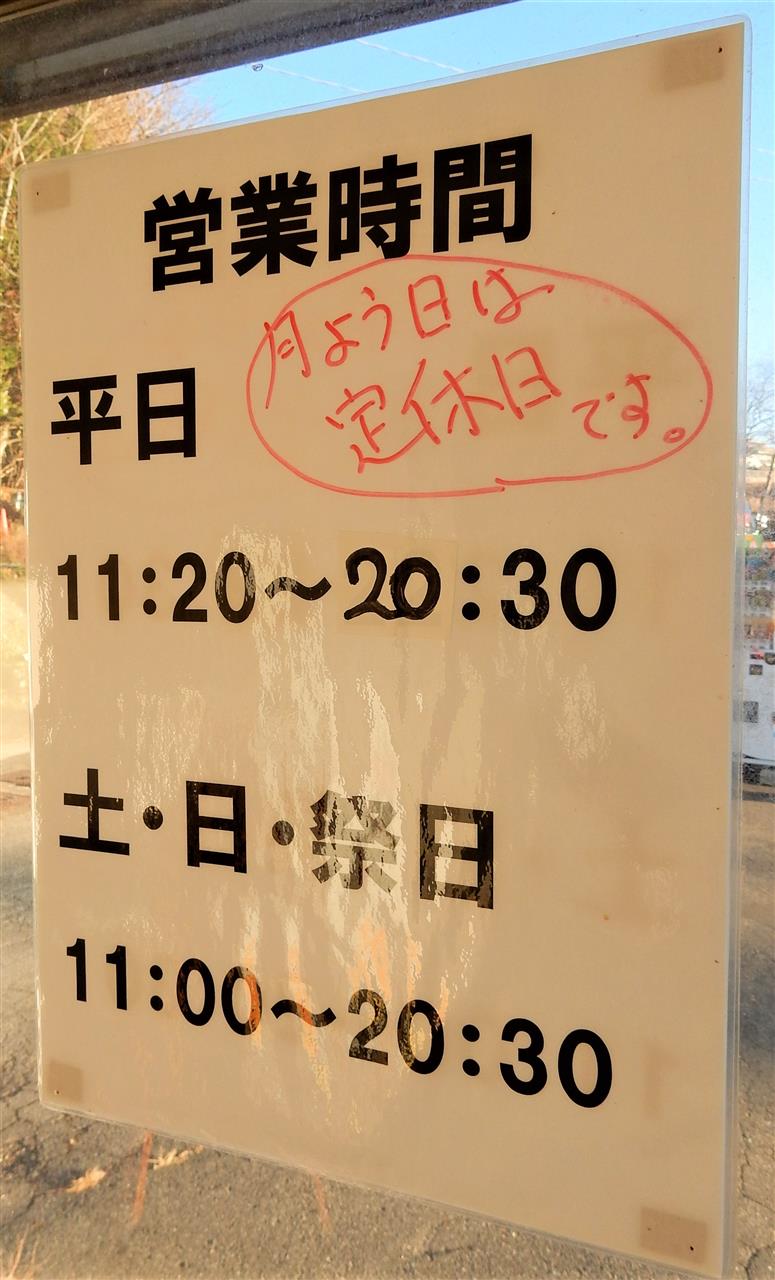 営業時間
月よう日は
定休日です。
平日
11:20～20:30
土・日・祭日
11:00～20:30